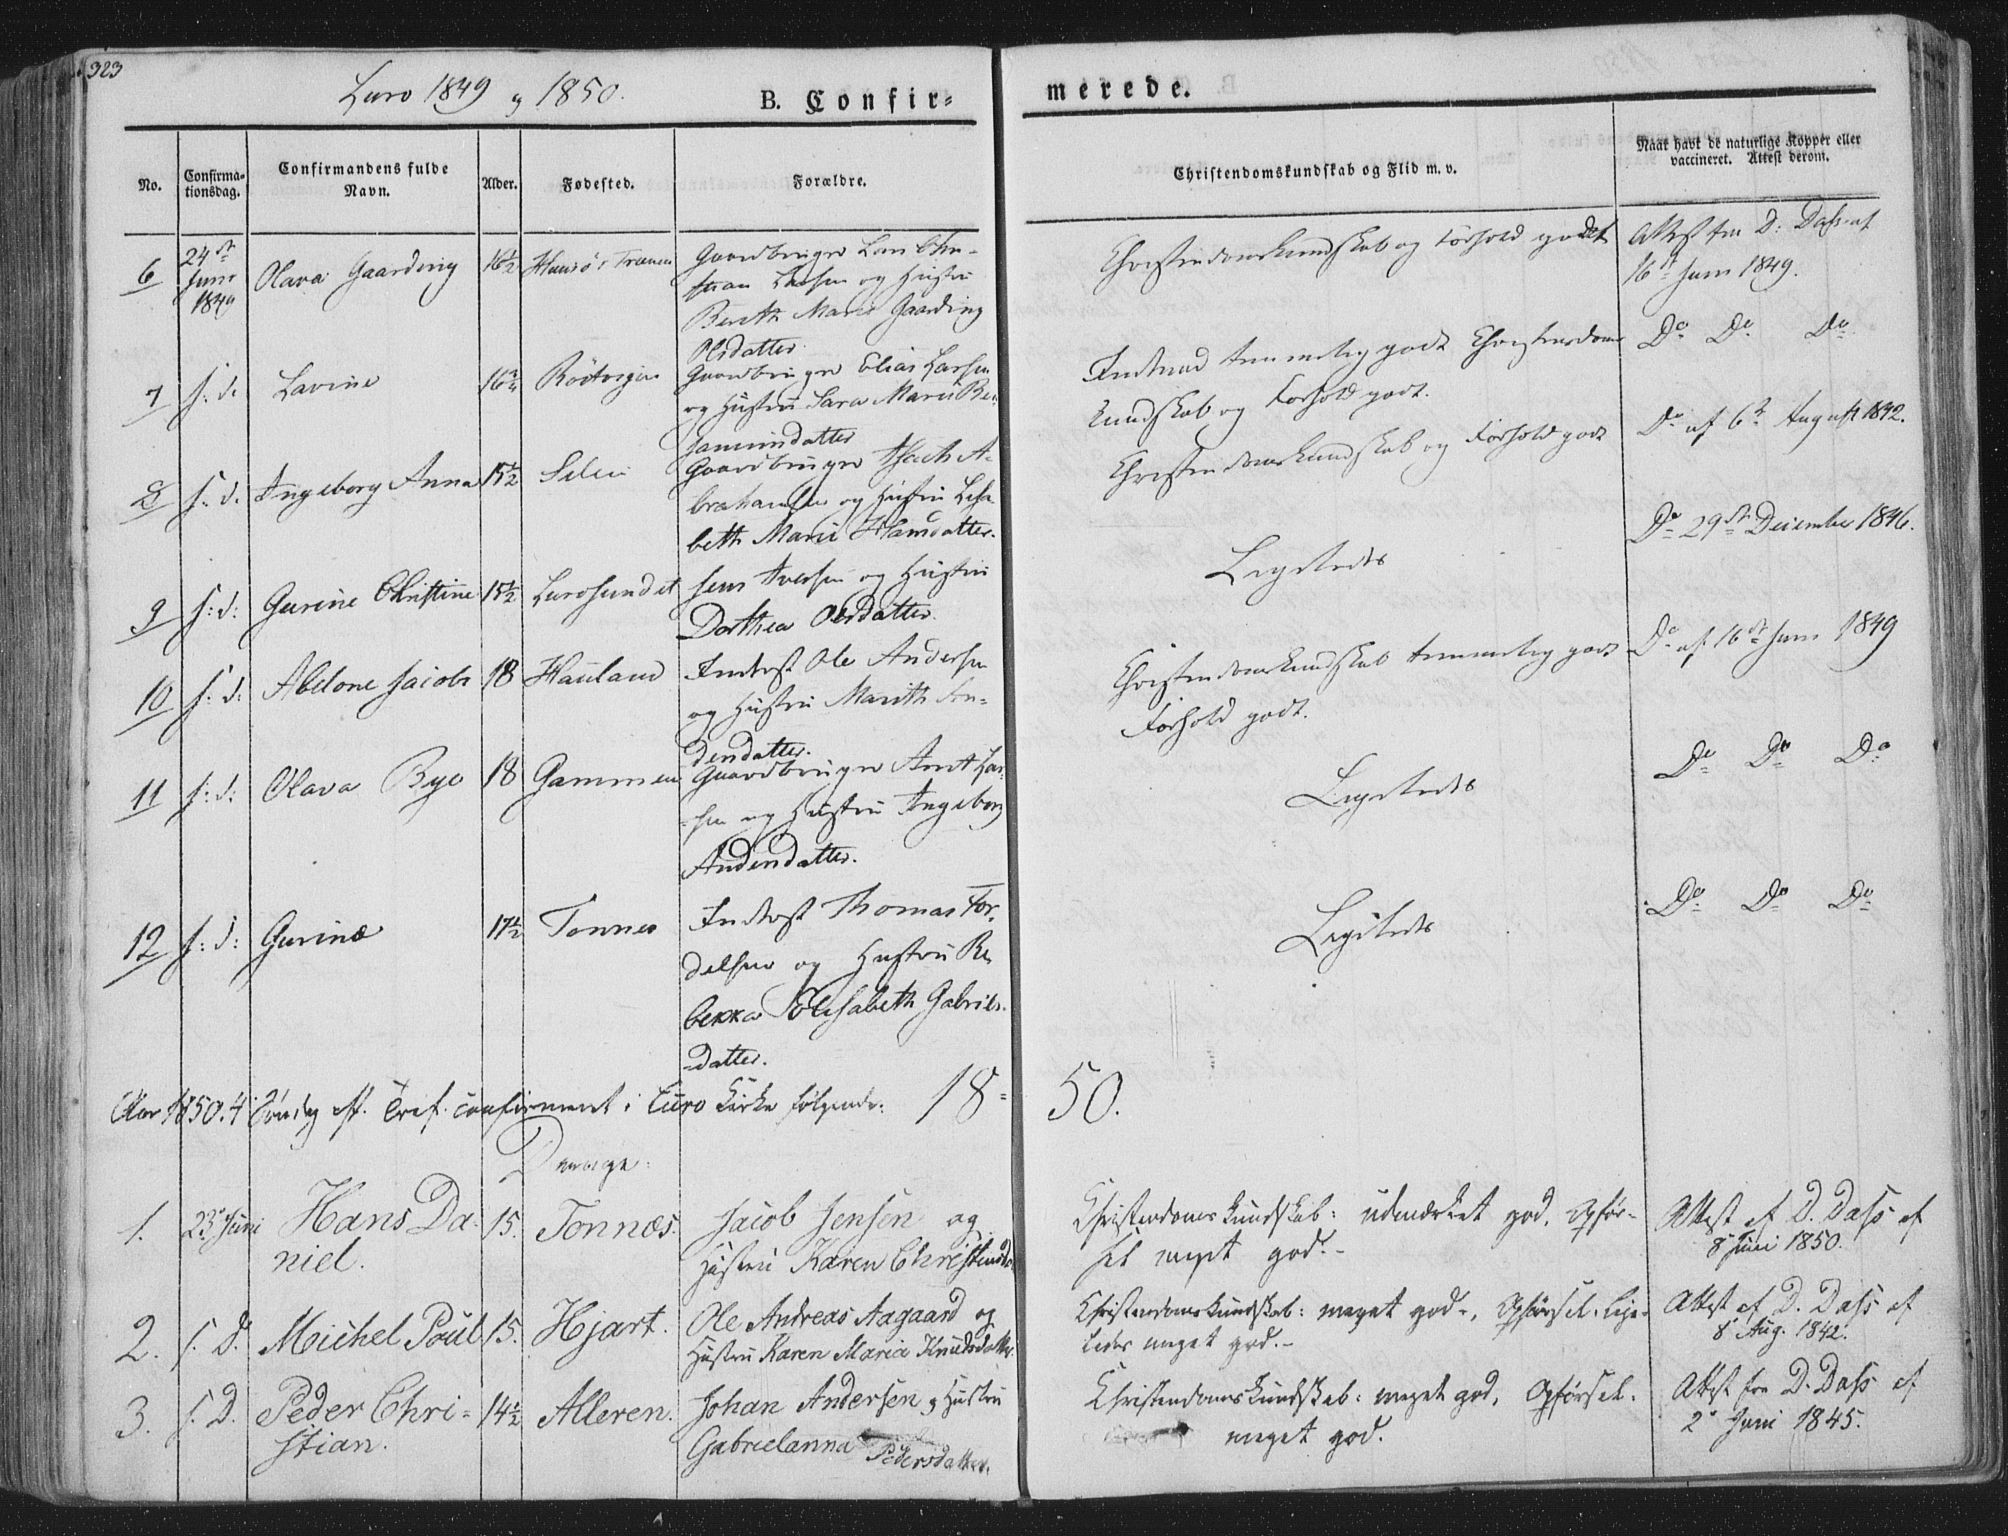 323
Luro 1849 og 1850.
B. Confir=
merede.
No.
Confirma-
tionsdag.
Confirmandens fulde
Navn.
Alder.
Fødested.
Forældre.
Christendomskundskab og Flid m. v.
Naar havt de naturlige Kopper eller
vaccineret. Attest derom.
6
24de
Juni
1849
Olava Gaarding
16½
Gaardbruger Lars Chri-
stian Larsen og Hustru
Bereth Marie Gaarding
Olsdatter.
Christendomskundskab og Forhold godt
Attest fra D: Dass af
16de Juni 1849.
7
s: d:
Lavine
16¾
Gaardbruger Elias Larsen
og Hustru Sara Maria Ben-
jaminsdatter
Indenad temmelig godt Christendoms
kundskab og Forhold godt.
Do Do Do
8
s: d:
Ingeborg Anna
15½
Selen
Gaardbruger Isach A-
brahamsen og Hustru Lisa
beth Marie Hansdatter.
Christendomskundskab og Forhold godt
Do af 6te August 1842.
9
s: d:
Gurine Christine
15½
Lurosundet
Jens Iversen og Hustru
Dorthea Olsdatter.
Ligeledes
Do 29de December 1846.
10
s: d:
Abelone Jacobs
18
Hauland
Inderst Ole Andersen
og Hustru Marith
Christendomskundskab temmelig godt
Forhold godt.
Do af 16de Juni 1849
11
s: d:
Olava Bye
18
Gammen
Gaardbruger Arnt Lar-
sen og Hustru Ingeborg
Andersdatter.
Ligeledes
Do Do Do
12
s: d:
Gurine
17½
Tonnes
Inderst Thomas Tor-
delsen og Hustru Re
bekka Elisabeth Gabriels-
datter.
Ligeledes
Do Do Do
Aar 1850. 4 Søndag eft. Tref. confirmeret i Luro Kirke følgende:
18=
50.
Drenge:
1.
23 Juni
Hans Da-
niel.
15.
Tonnæs.
Jacob Jensen og
Hustru Karen Christensd.
Christendomskundskab: udmærket god, Opfør-
sel meget god.-
Attest af D. Dass af
8 Juni 1850.
2.
s. D.
Michel Poul
15.
Hjart.
Ole Andreas Aagaard og
Hustru Karen Maria Knudsdatter.
Christendomskundskab: meget god-, Opførsel lige-
ledes meget god.-
Attest af D. Dass af
8 Aug. 1842.
3.
s. D.
Peder Chri-
stian.
14½
Alleren.
Johan Andersen og Hustru
Gabrielanna Pedersdatter.
Christendomskundskab: meget god, Opførsel
meget god.
Attest fra D. Dass af
2 Juni 1845.